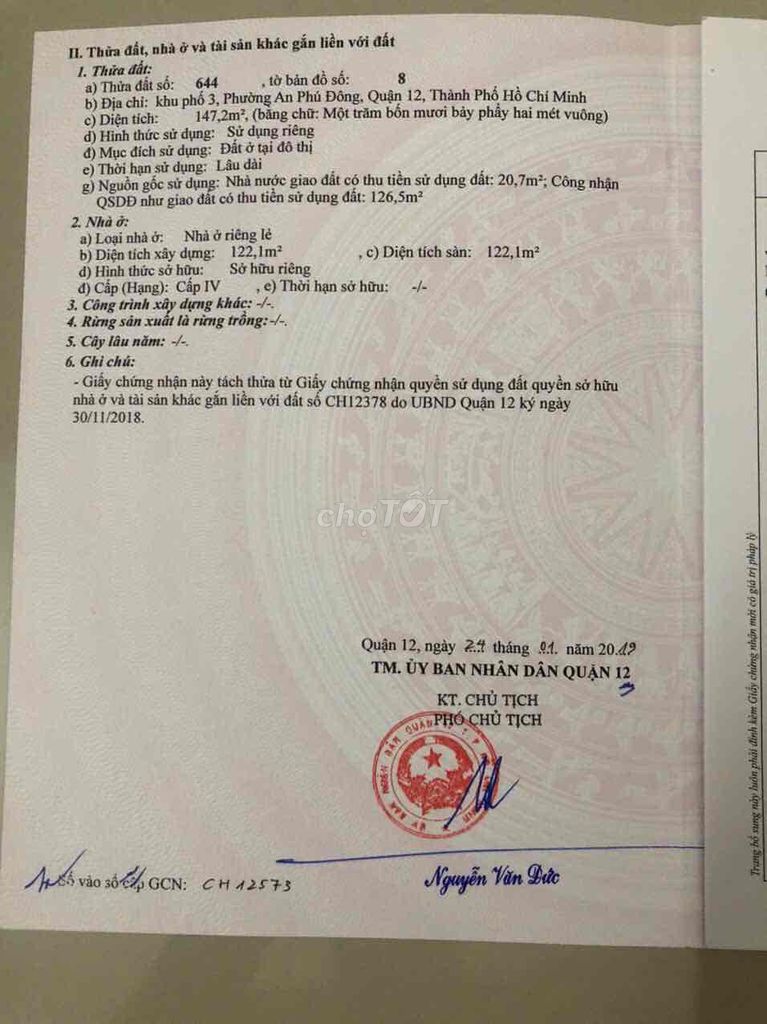 II. Thửa đất, nhà ở và tài sản khác gắn liền với đất
1. Thửa đất:
a) Thửa đất số: 644 , tờ bản đồ số: 8
b) Địa chỉ: khu phố 3, Phường An Phú Đông, Quận 12, Thành Phố Hồ Chí Minh
c) Diện tích: 147,2m², (bằng chữ: Một trăm bốn mươi bảy phẩy hai mét vuông)
d) Hình thức sử dụng: Sử dụng riêng
đ) Mục đích sử dụng: Đất ở tại đô thị
e) Thời hạn sử dụng: Lâu dài
g) Nguồn gốc sử dụng: Nhà nước giao đất có thu tiền sử dụng đất: 20,7m²; Công nhận
QSDĐ như giao đất có thu tiền sử dụng đất: 126,5m²
2. Nhà ở:
a) Loại nhà ở: Nhà ở riêng lẻ
b) Diện tích xây dựng: 122,1m² , c) Diện tích sàn: 122,1m²
d) Hình thức sở hữu: Sở hữu riêng
đ) Cấp (Hạng): Cấp IV , e) Thời hạn sở hữu: -/-
3. Công trình xây dựng khác: -/-.
4. Rừng sản xuất là rừng trồng:-/-.
5. Cây lâu năm: -/-.
6. Ghi chú:
- Giấy chứng nhận này tách thửa từ Giấy chứng nhận quyền sử dụng đất quyền sở hữu
nhà ở và tài sản khác gắn liền với đất số CH12378 do UBND Quận 12 ký ngày
30/11/2018.
chợTỐT
Quận 12, ngày 24 tháng 01 năm 2019
TM. ỦY BAN NHÂN DÂN QUẬN 12
KT. CHỦ TỊCH
PHÓ CHỦ TỊCH
Nguyễn Văn Đức
Số vào sổ cấp GCN: CH12573
Trang bổ sung này luôn phải đính kèm Giấy chứng nhận mới có giá trị pháp lý